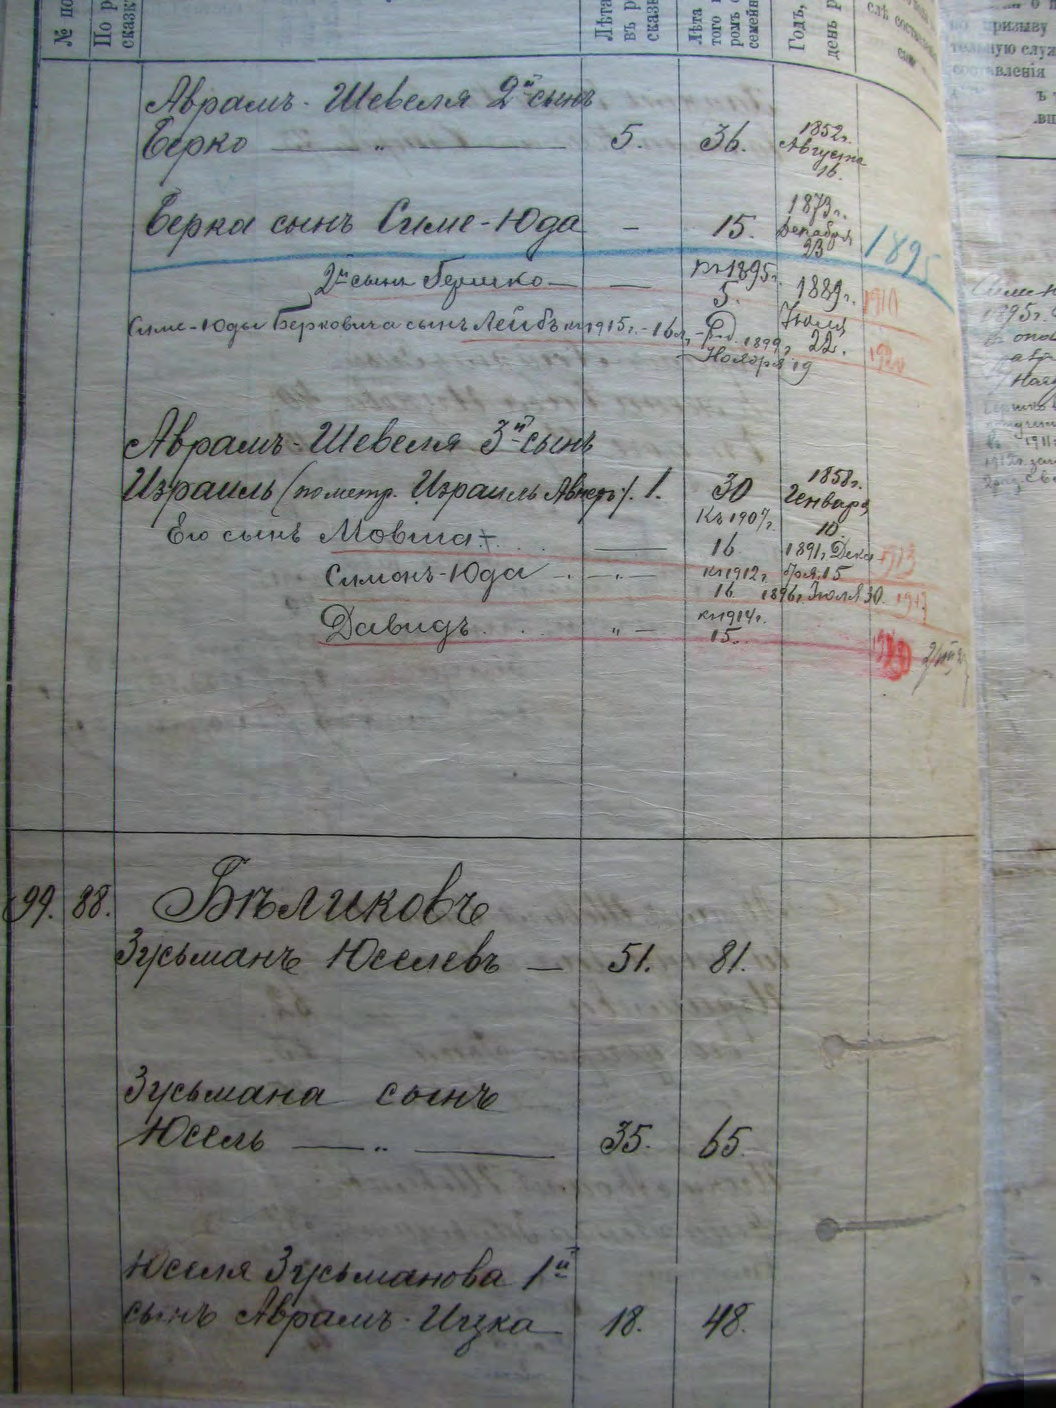 № по
По р
сказк
Лѣта
въ р
сказ
Лѣта
того
ромъ
семейн
Годъ,
день р
Аврамъ-Шевеля 2й сынъ
Берко — " — 5. 36. 1852г. Августа 16.
Берка сынъ Симе-Юда — 15. 1873г. Декабря 23 1895
2й сынъ Гершко — — къ 1895г. 5. 1889г. Іюля 22. 1910
Симе-Юды Берковича сынъ Лейбъ къ 1915г. - 16 л, - Род. 1899г. Ноября 19 1920
Аврамъ-Шевеля 3й сынъ
Израиль (по метр. Израиль ). 1. 30 1858г. Генваря 10.
Его сынъ Мовша — Къ 1907г. 16 1891г. Декабря 15 1913
Симонъ-Юда — " — къ 1912г. 16 1896г. Іюля 30. 1917
Давидъ " — къ 1914г. 15.
99. 88. Бѣликовъ
Зусьманъ Юселевъ — 51. 81.
Зусьмана сынъ
Юсель — " — 35. 65.
Юселя Зусьманова 1й
сынъ Аврамъ-Ицка 18. 48.
призыву
составленія